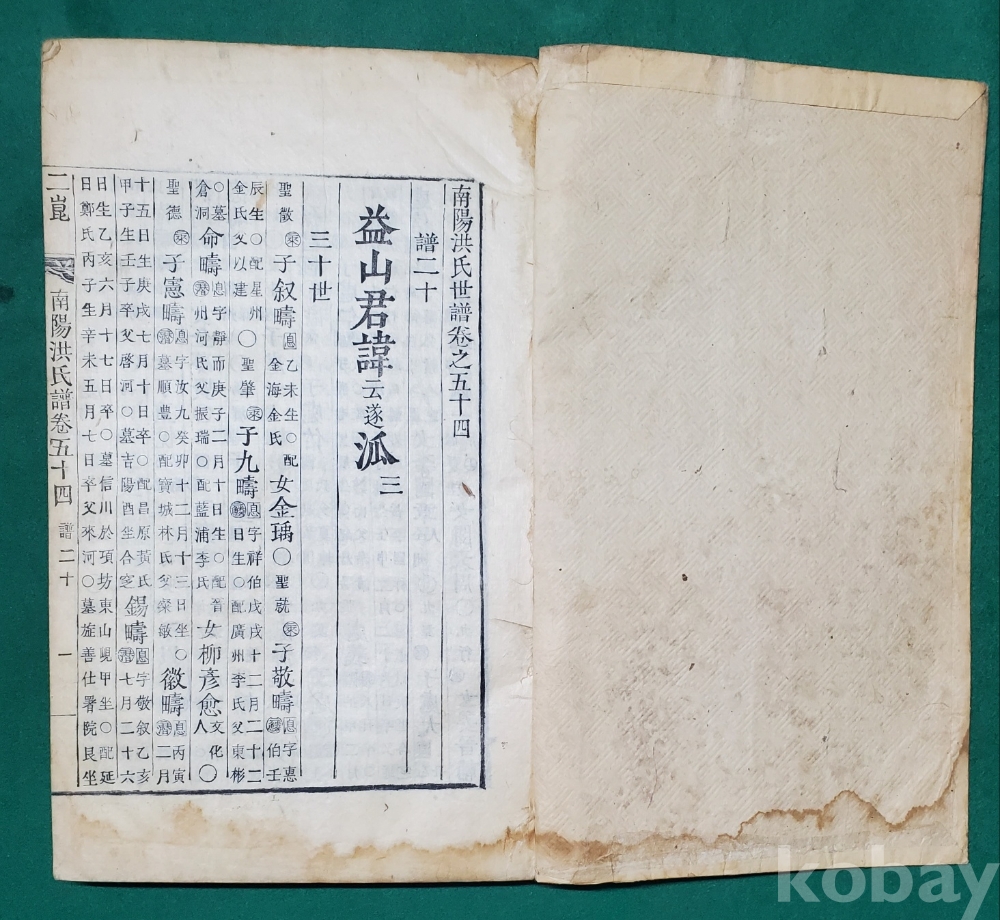 南陽洪氏世譜卷之五十四
譜二十
益山君諱云遂派三
三十世
聖徵 子叙疇 乙未生○配金海金氏 女金瑀○聖就 子敬疇 字惠伯壬
辰生○配星州金氏父以建○聖肇 子九疇 字祥伯戊戌十二月二十二日生○配廣州李氏父東彬
○墓倉洞 命疇 字靜而庚子二月十日生○配 州河氏父振瑞○配藍浦李氏 女柳彥愈 文化人○
聖德 子憲疇 字汝九癸卯十二月十三日 墓順豊○配寶城林氏父 敏 坐○徽疇 丙寅二月
十五日生庚戌七月十日卒○配昌原黃氏甲子生壬子卒父啓河○墓吉陽酉坐合窆 錫疇 字敬叙乙亥七月二十六
日生乙亥六月十七日卒○墓信川於項坊東山 甲坐○配延日鄭氏丙子生辛未五月七日卒父來河○墓旌善仕署院艮坐
二崑
南陽洪氏譜卷五十四 譜二十 一
kobay